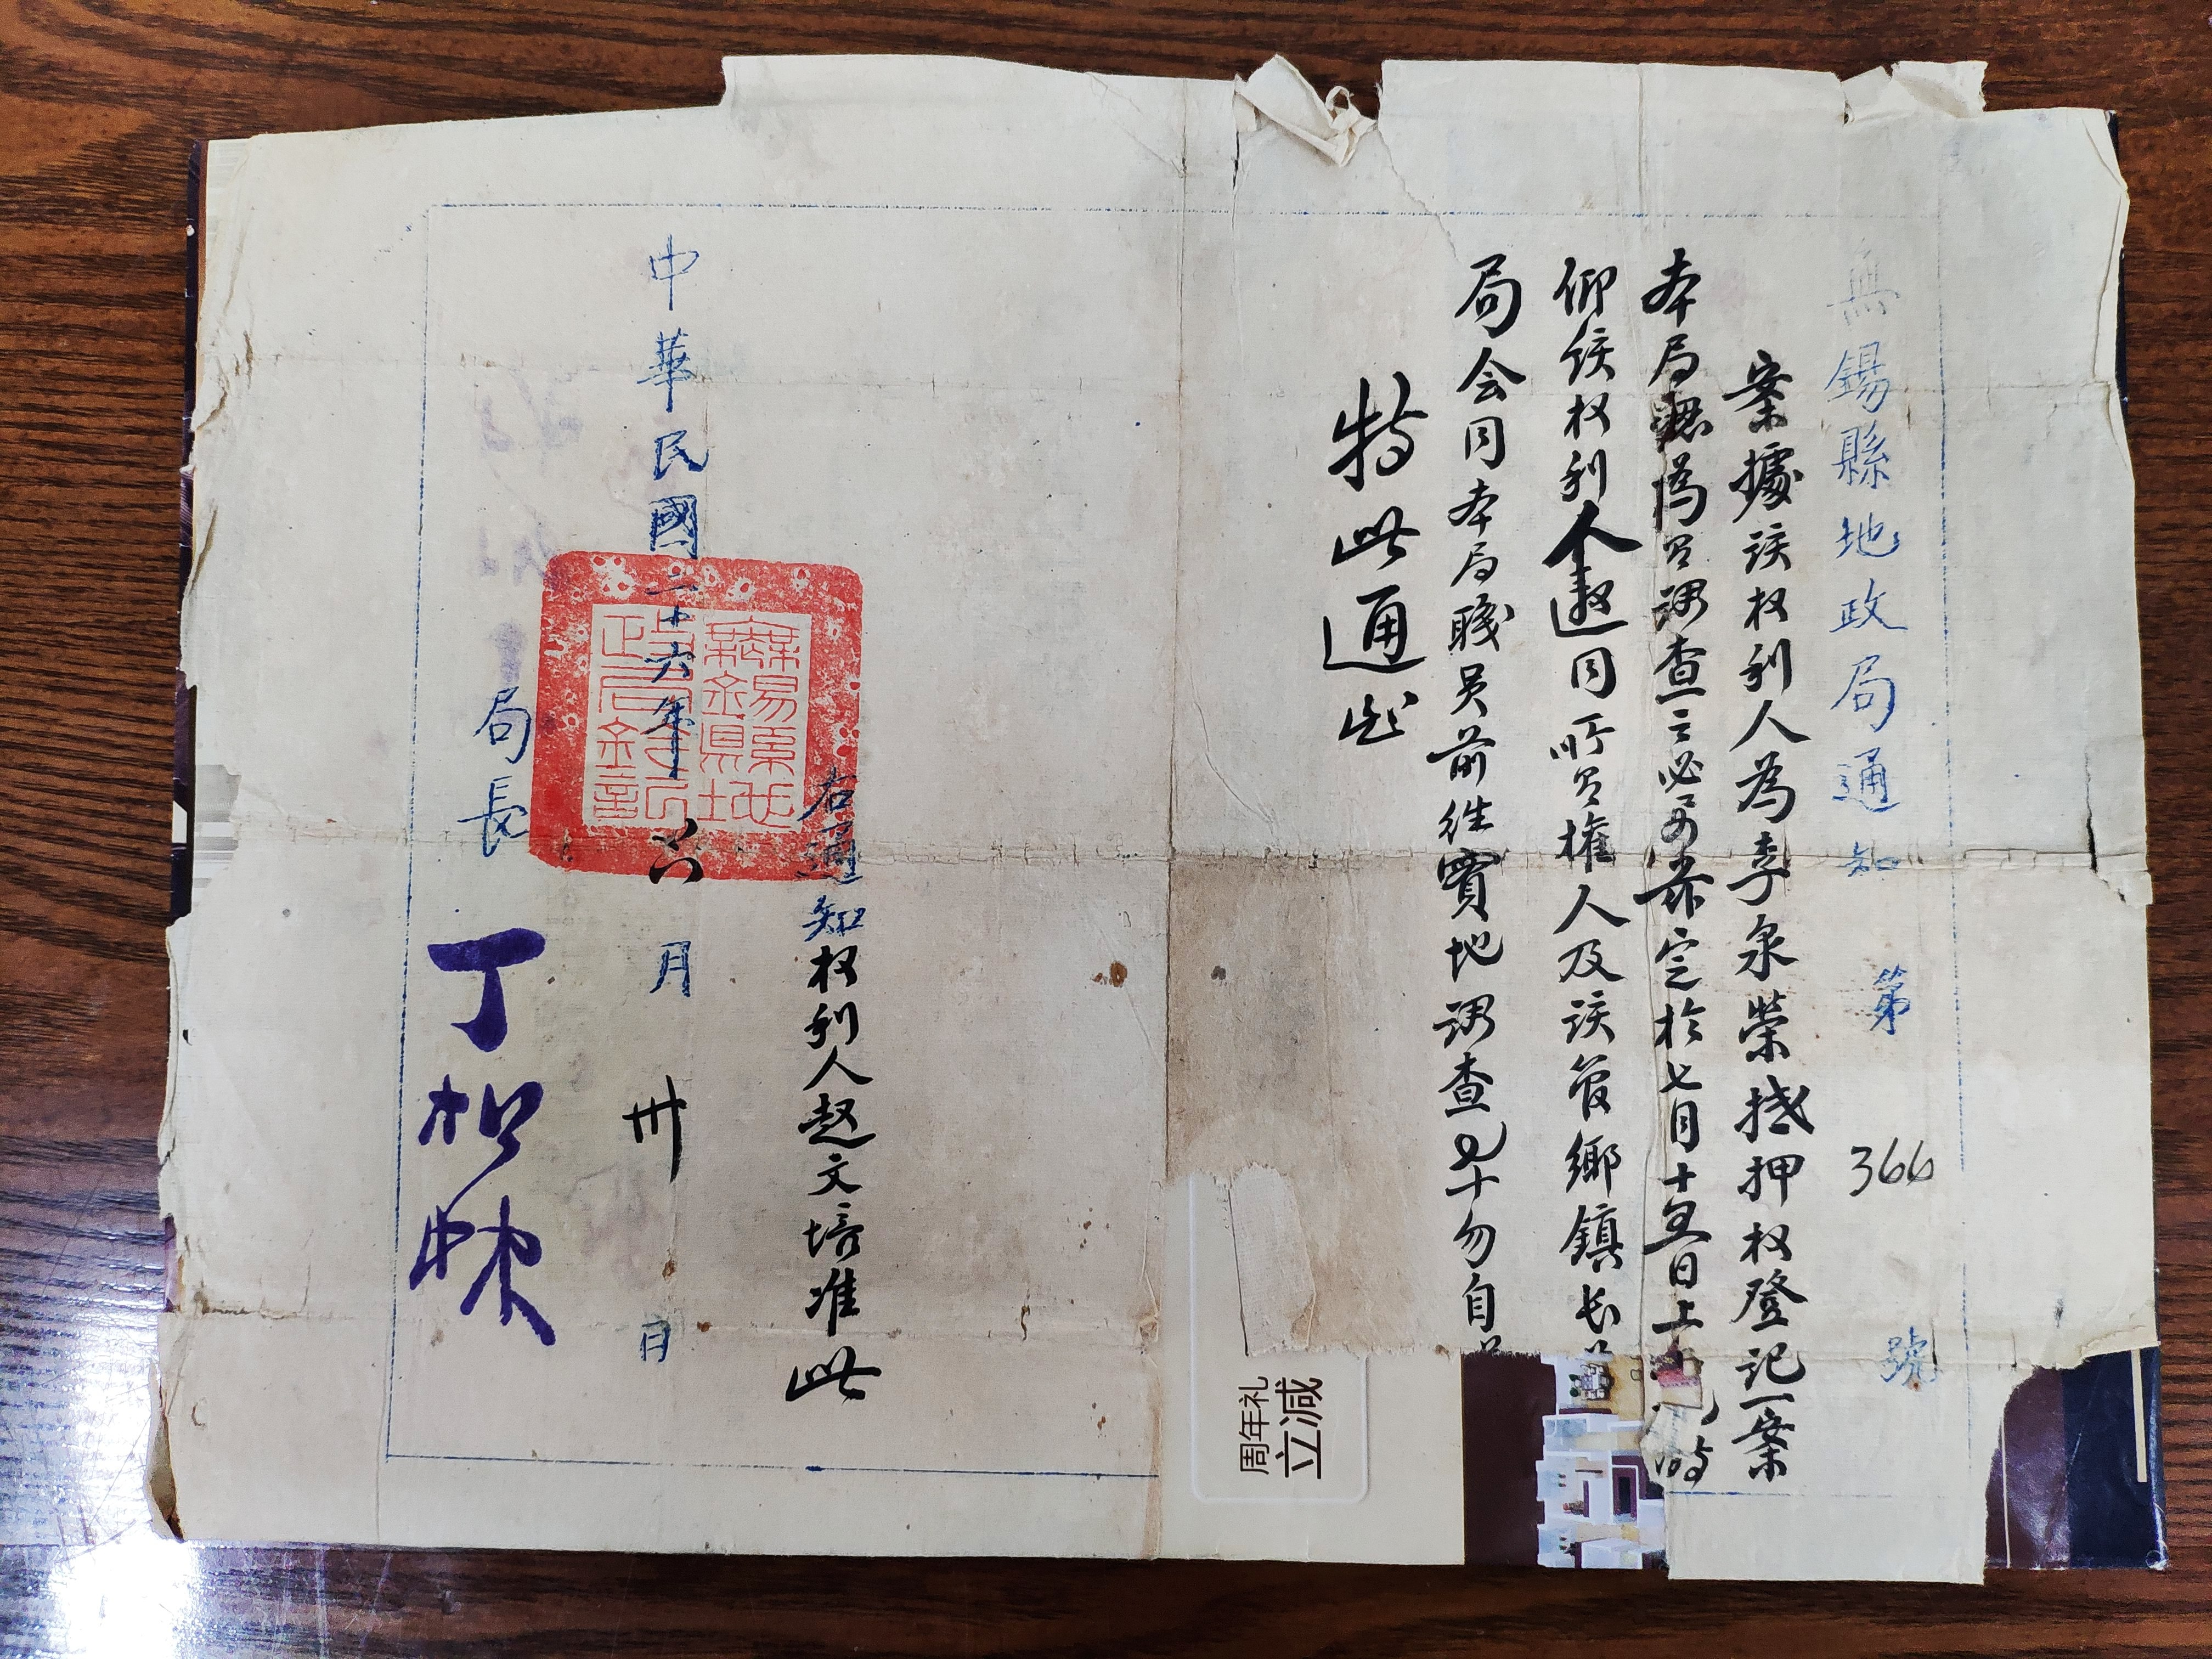 無錫縣地政局通知 第 366 號
案據该权利人為李泉榮抵押权登记一案
本局認為有调查之必要兹定於七月十五日上
仰该权利人邀同所有權人及该管鄉鎮长
局会同本局職員前往實地调查 勿自
特此通知
右通知权利人赵文培准此
中華民國二十六年六月卅日
局長 丁
無錫縣地政局鈐記
周年礼
立减